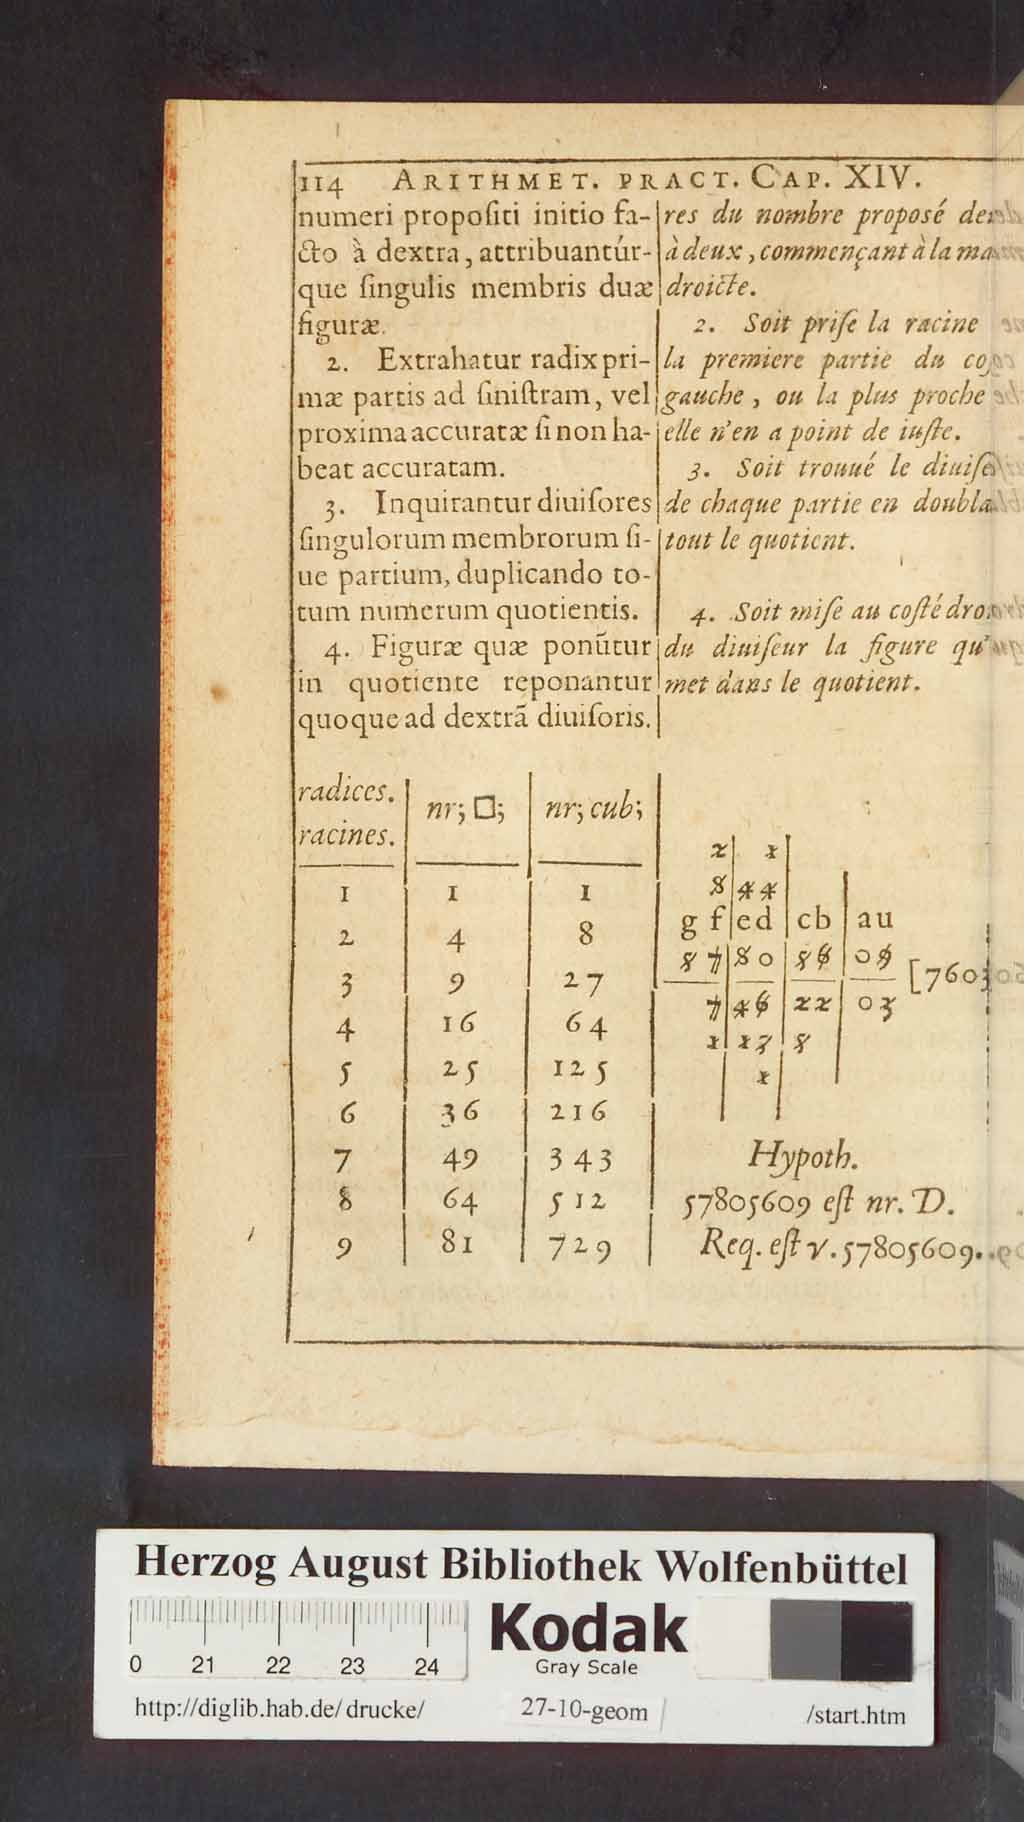 114 ARITHMET. PRACT. CAP. XIV.
numeri propoſiti initio fa-
cto à dextra, attribuantúr-
que ſingulis membris duæ
figuræ.
2. Extrahatur radix pri-
mæ partis ad ſiniſtram, vel
proxima accuratæ ſi non ha-
beat accuratam.
3. Inquirantur diuiſores
ſingulorum membrorum ſi-
ue partium, duplicando to-
tum numerum quotientis.
4. Figuræ quæ ponũtur
in quotiente reponantur
quoque ad dextrã diuiſoris.
res du nombre proposé de
à deux, commençant à la
droicte.
2. Soit priſe la racine
la premiere partie du
gauche, ou la plus proche
elle n'en a point de iuſte.
3. Soit trouué le
de chaque partie en
tout le quotient.
4. Soit miſe au coſté
du diuiſeur la figure qu'
met dans le quotient.
radices. nr; □; nr; cub;
racines.
1 1 1
2 4 8
3 9 27
4 16 64
5 25 125
6 36 216
7 49 343
8 64 512
9 81 729
2 1
8 44
g f ed cb au
5 7 80 56 09 [7603
7 46 22 03
1 17 5
1
Hypoth.
57805609 eſt nr. D.
Req. eſt v. 57805609.
Herzog August Bibliothek Wolfenbüttel
Kodak
Gray Scale
0 21 22 23 24
http://diglib.hab.de/drucke/ 27-10-geom /start.htm